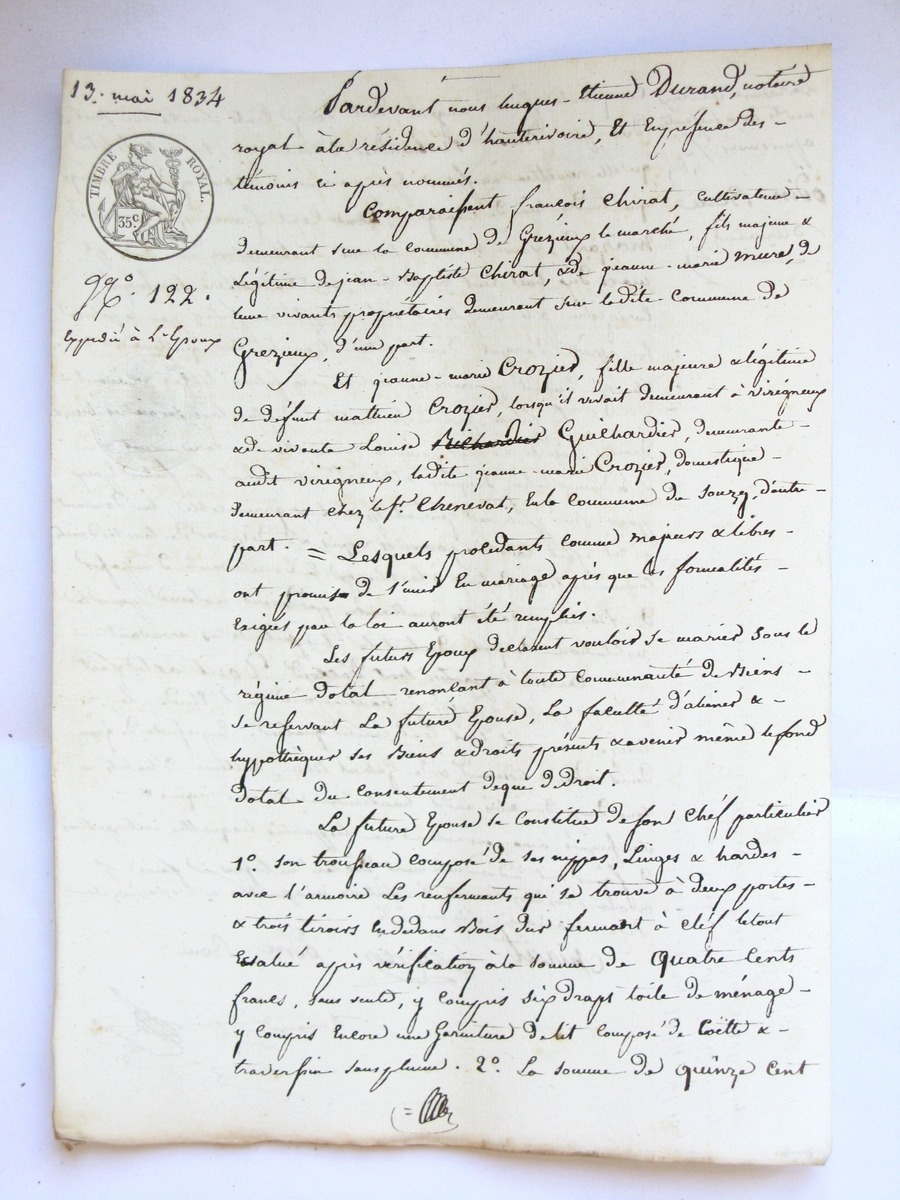 13. mai 1834
TIMBRE ROYAL.
35.c
No. 122.
Expedié à L'Epoux
Pardevant nous hugues-Etienne Durand, notaire
royal à la résidence d'hauterivoire, Et En présence des
témoins ci après nommés.
Comparaissent françois Chirat, cultivateur
demeurant sur la commune de Grézieux le marché, fils majeur &
Légitime de jean-Baptiste Chirat, & de jeanne-marie mure, de
leur vivants propriétaires demeurant sur la dite commune de
Grezieux, d'une part.
Et jeanne-marie Crozier, fille majeure & légitime
de défunt mathieu Crozier, lorsqu'il vivait demeurant à virigneux
& de vivante Louise Guilhardier, demeurante
audit virigneux, ladite jeanne-marie Crozier, domestique
demeurant chez le sr. Chenevat, En la commune de Souzy, d'autre
part. = Lesquels procédants comme majeurs & libres
ont promis de s'unir En mariage après que les formalités
Exigées par la loi auront été remplies.
Les futurs Epoux déclarent vouloir se marier sous le
régime dotal renonçant à toute communauté de Biens
se reservant La future Epouse, La faculté d'aliéner &
hyppothèquer ses Biens & droits présents & avenir même le fond
dotal du consentement de que de Droit.
La future Epouse se Constitue de son Chéf particulier
1o. son trousseau composé de ses nippes, Linges & hardes
avec l'armoire Les renfermants qui se trouve à deux portes
& trois tiroirs en dedans Bois dur fermant à cléf le tout
Evalué après vérification à la somme de quatre Cents
francs, sans vente, y compris six draps toile de ménage
y compris Encore une Garniture de lit composé de Coëtte &
traversin sans plume. 2o. La somme de quinze Cent